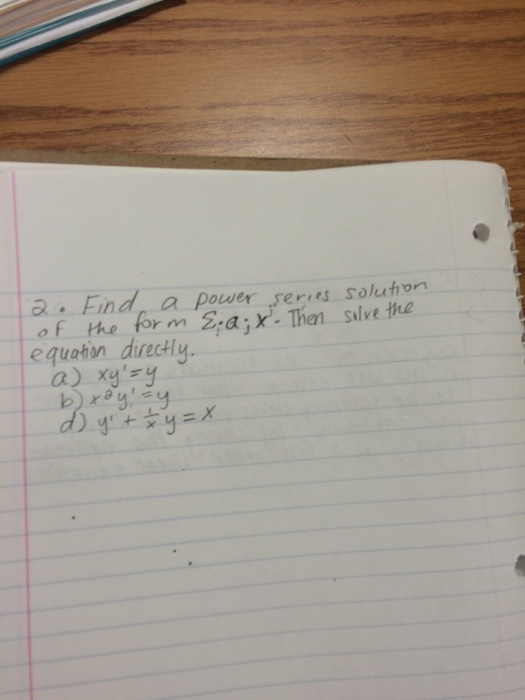 2. Find a power series solution
of the form Σⱼ aⱼ xʲ. Then solve the
equation directly.
a) xy' = y
b) x²y' = y
d) y' + 1/x y = x